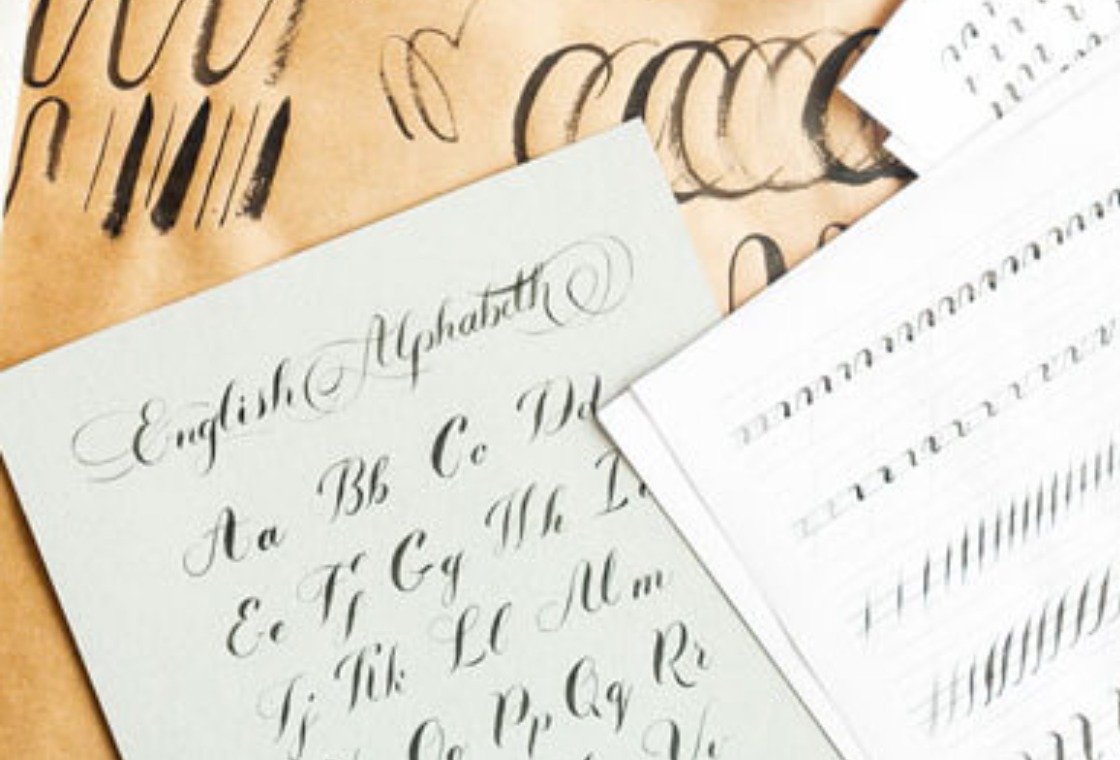 English Alphabeth
Aa Bb Cc Dd
Ee Ff Gg Hh
Jj Kk Ll Mm
Oo Pp Qq Rr